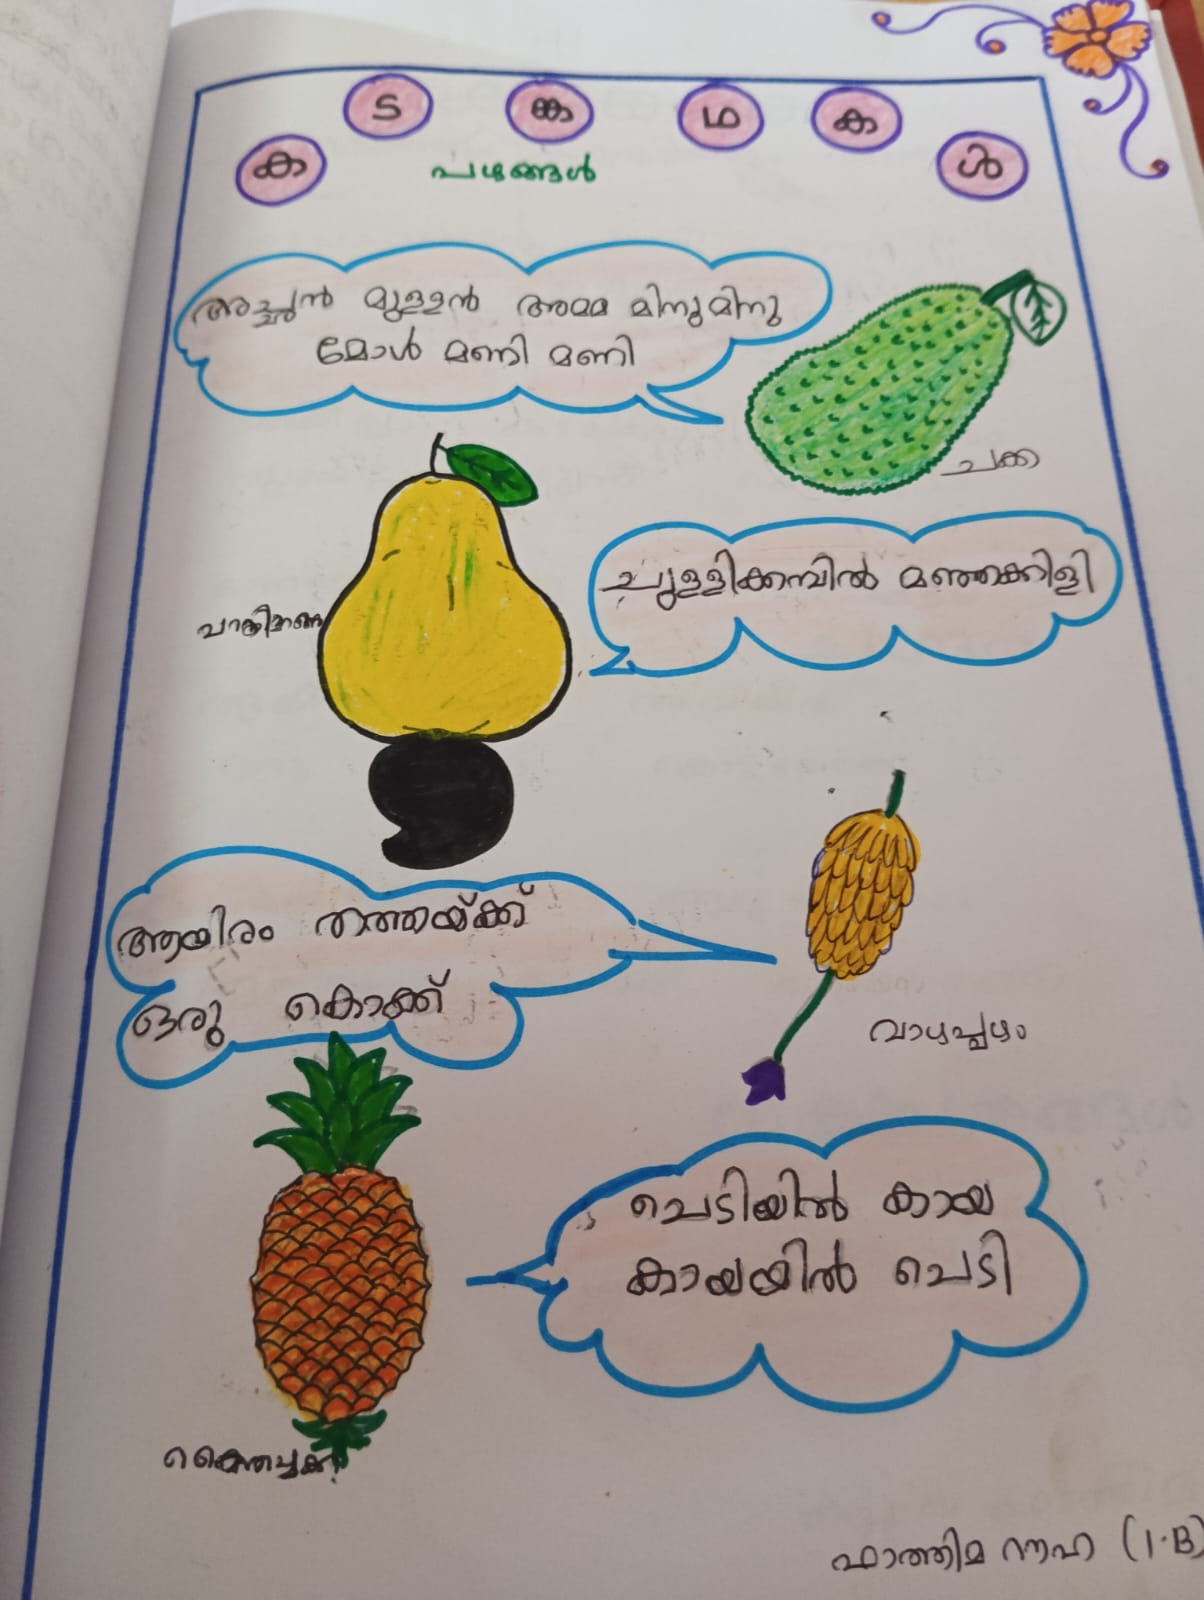 കടങ്കഥകൾ
പഴങ്ങൾ
അച്ഛൻ മുള്ളൻ അമ്മ മിനുമിനു
മോൾ മണി മണി
ചക്ക
ചുള്ളിക്കമ്പിൽ മഞ്ഞക്കിളി
ആയിരം തത്തയ്ക്ക്
ഒരു കൊക്ക്
വാഴപ്പഴം
ചെടിയിൽ കായ
കായയിൽ ചെടി
കൈതച്ചക്ക
ഫാത്തിമ നൗഹ (1.B)